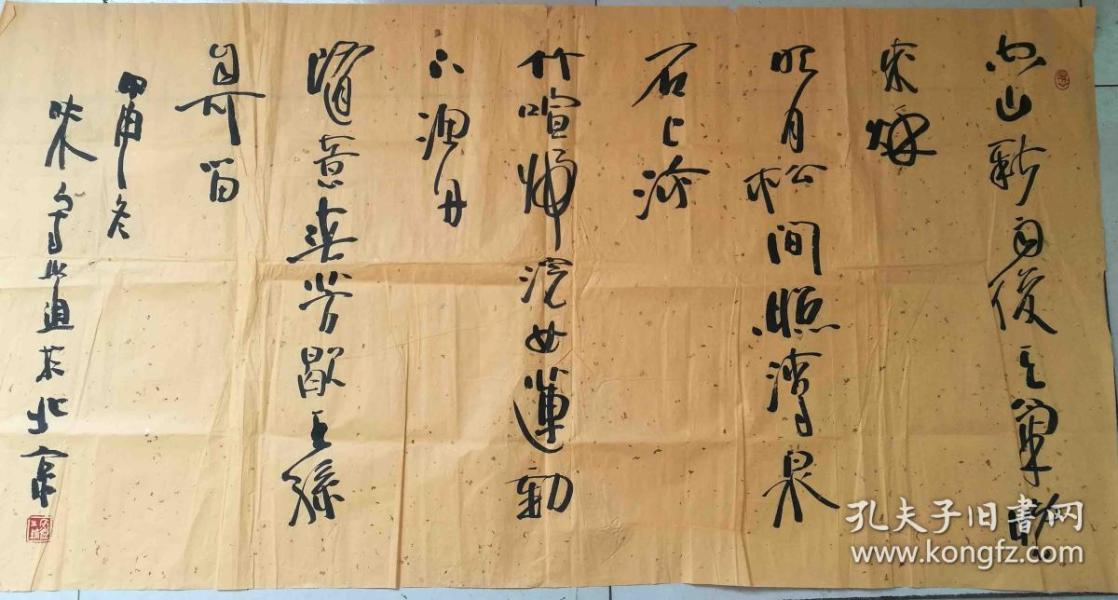 空山新雨後天氣晚
來秋
明月松間照清泉
石上流
竹喧歸浣女蓮動
下漁舟
隨意春芳歇王孫
自可留
甲申冬
味於北京
孔夫子旧書网
www.kongfz.com